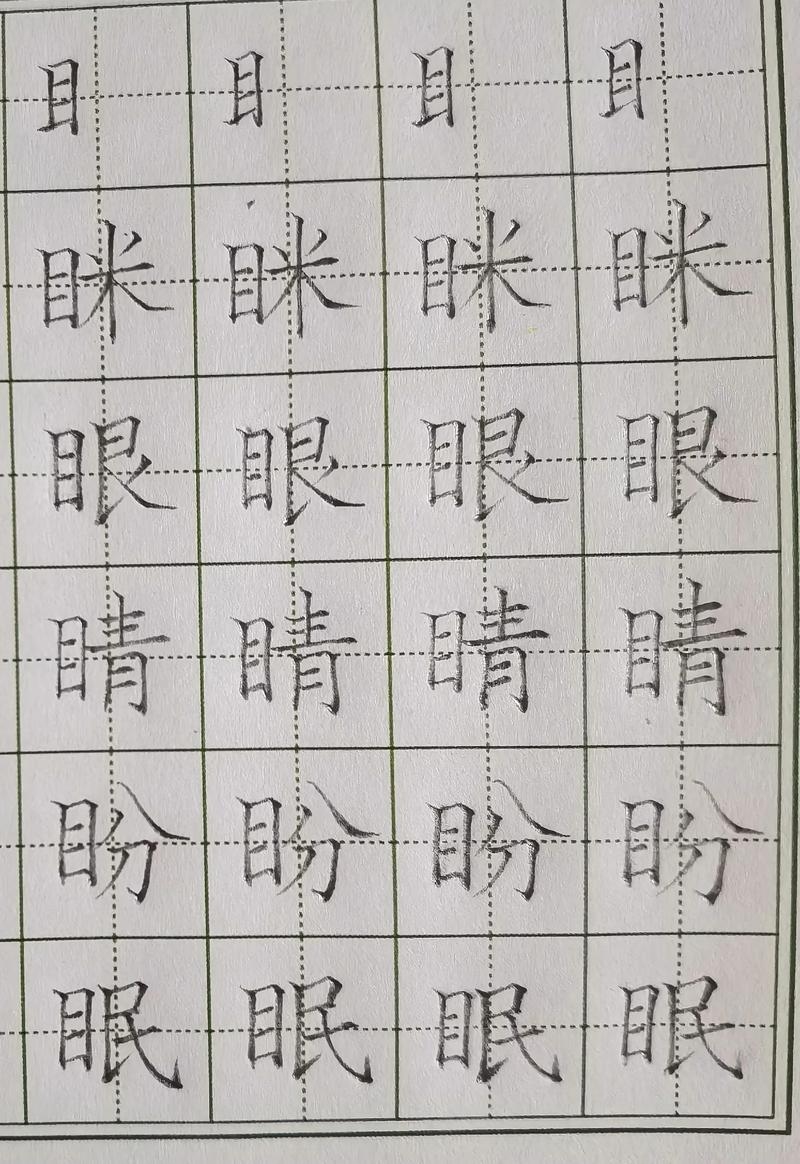 目 目 目 目
眯 眯 眯 眯
眼 眼 眼 眼
睛 睛 睛 睛
盼 盼 盼 盼
眠 眠 眠 眠